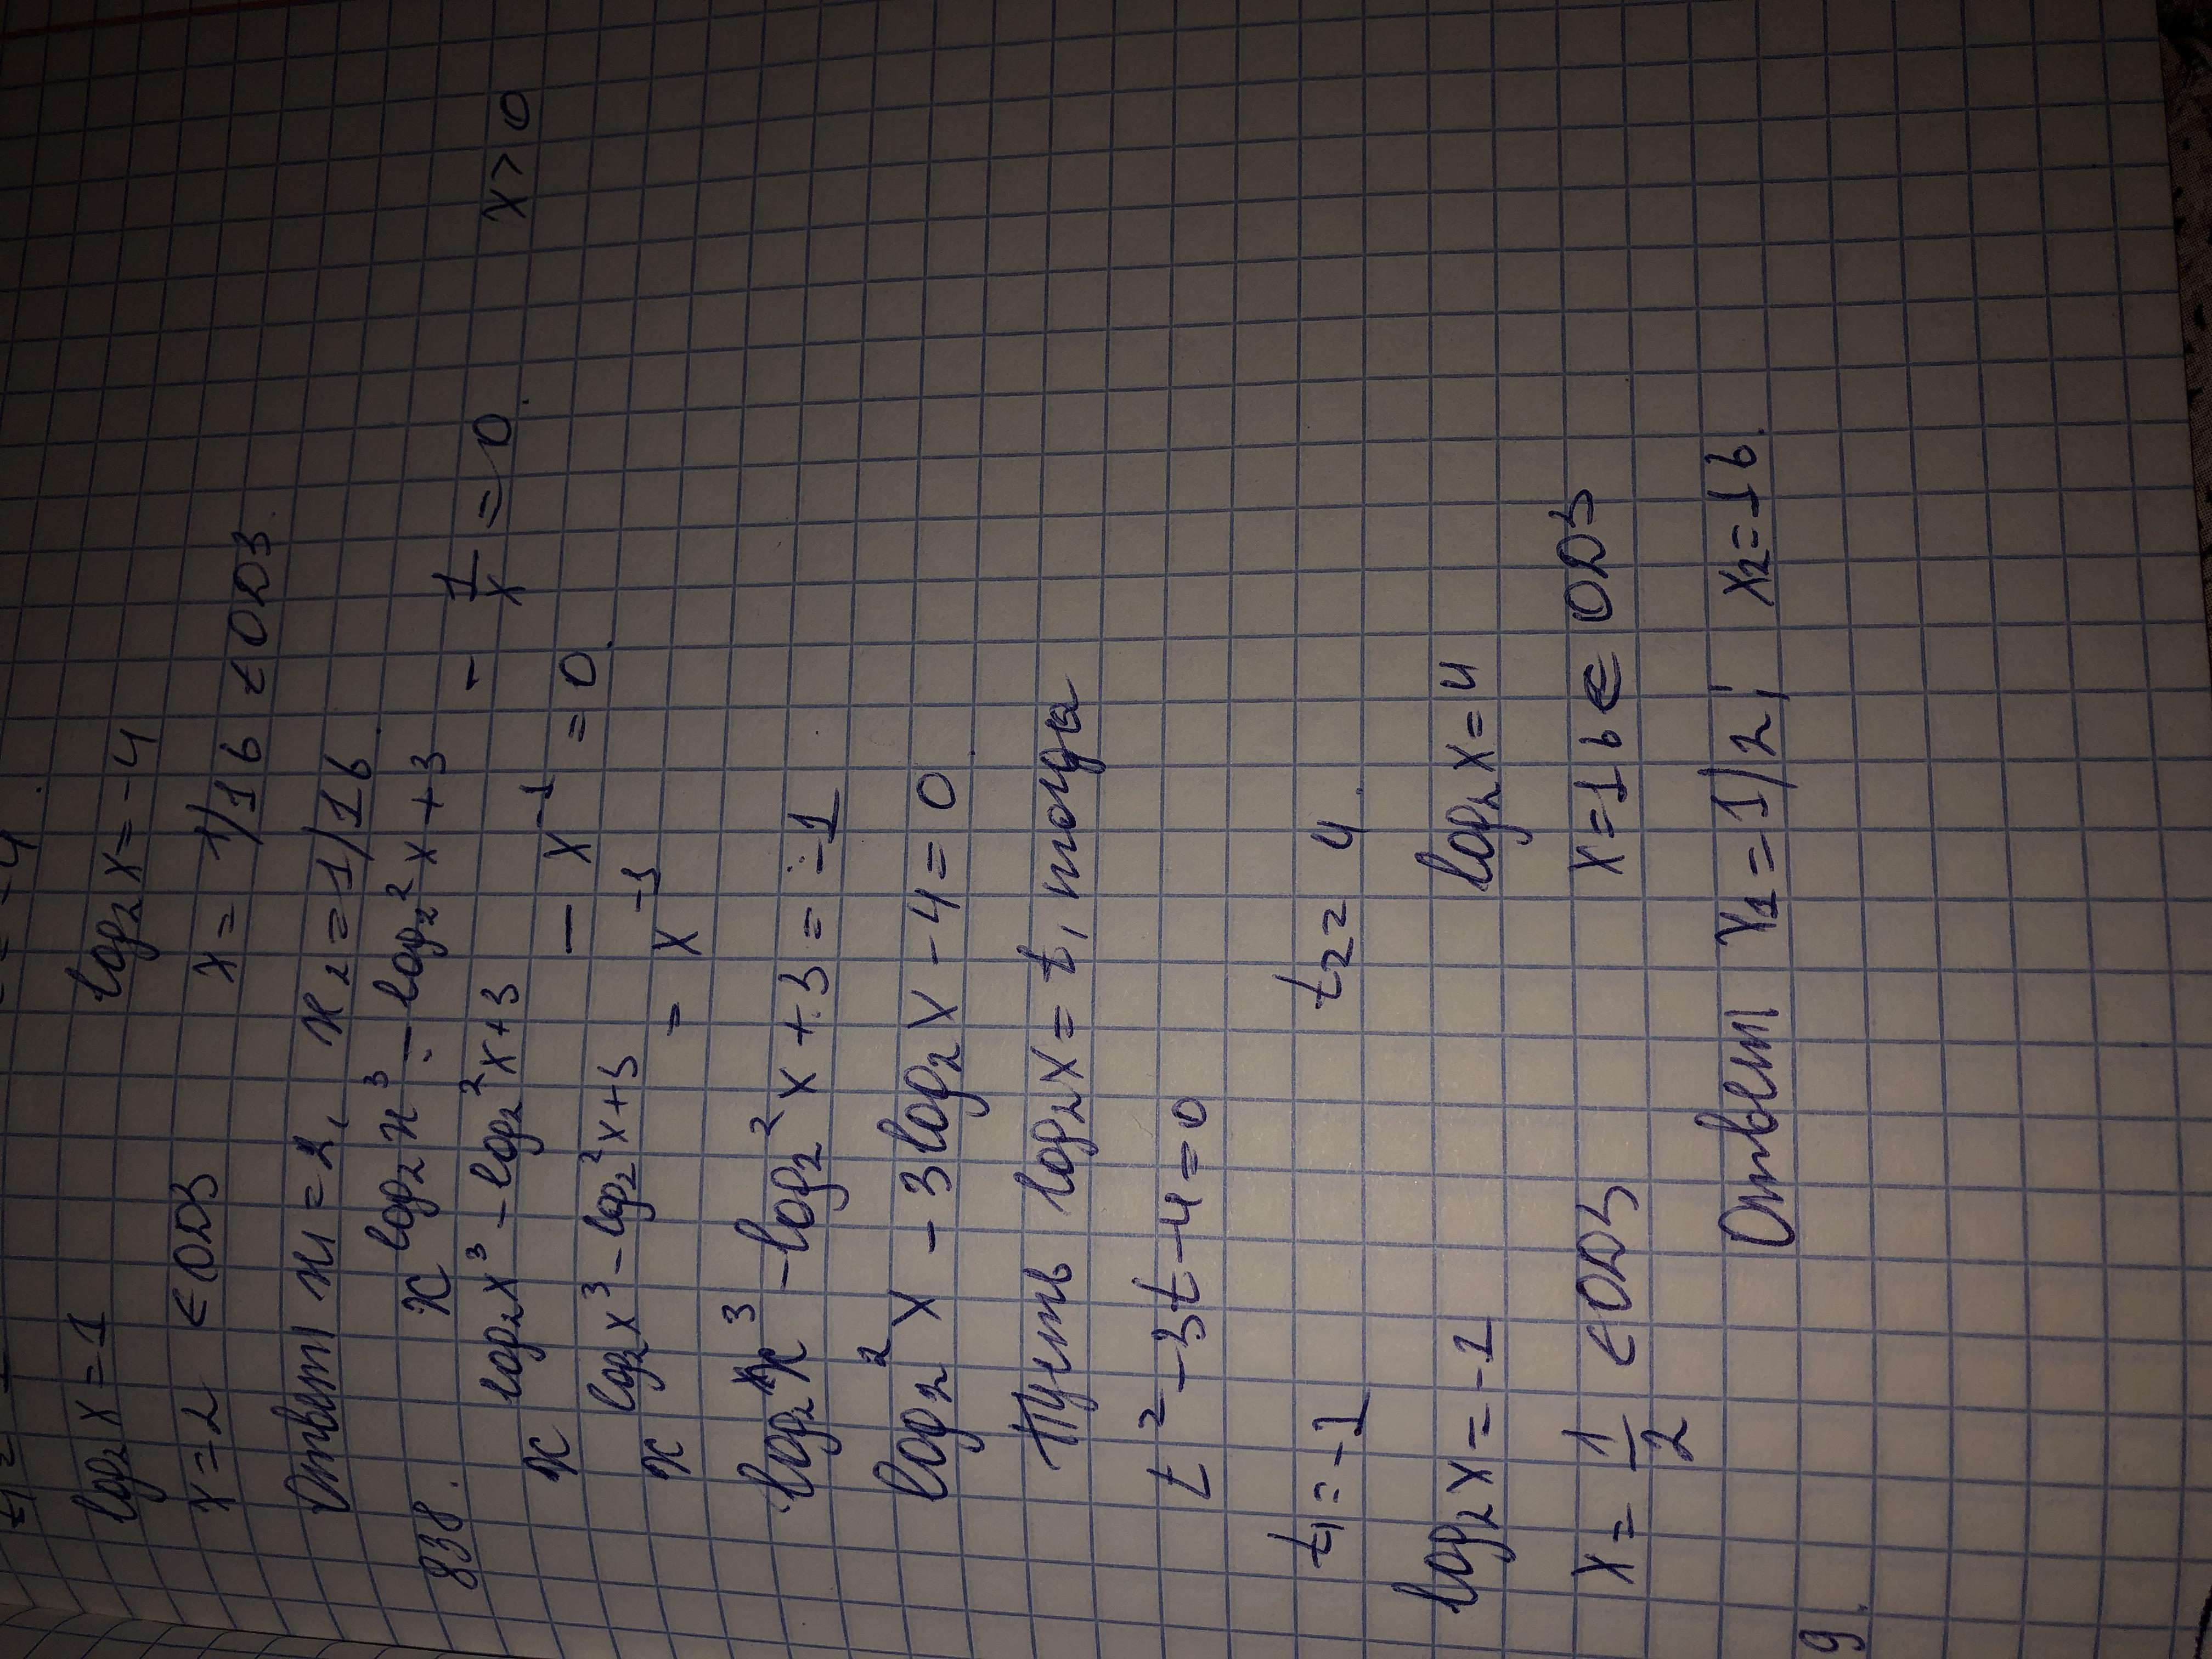 log₂x = 1    log₂x = -4
x = 2 ∈ ОДЗ    x = 1/16 ∈ ОДЗ.
Ответ x₁ = 2, x₂ = 1/16.
838. x^(log₂x³ - log₂²x + 3) - 1/x = 0.    x > 0
x^(log₂x³ - log₂²x + 3) - x⁻¹ = 0.
x^(log₂x³ - log₂²x + 3) = x⁻¹
log₂x³ - log₂²x + 3 = -1
log₂²x - 3log₂x - 4 = 0
Пусть log₂x = t, тогда
t² - 3t - 4 = 0
t₁ = -1    t₂ = 4.
log₂x = -1    log₂x = 4
x = 1/2 ∈ ОДЗ    x = 16 ∈ ОДЗ
Ответ x₁ = 1/2; x₂ = 16.
9.